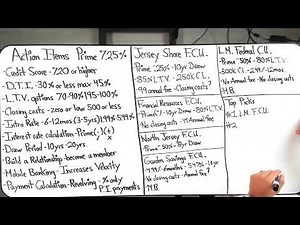 Action Items Prime 7.25%
Credit Score - 720 or higher
D.T.I. - 30% or less max 45%
L.T.V. options 70-80%/95-100%
Closing costs - zero or low 500 or less
Intro Rate - 6-12mos (3-5yrs) 1.99%-5.99%
Interest rate calculation - Prime (-) (+)
Draw Period - 10yrs - 20yrs.
Build a Relationship - become a member
Mobile Banking - Increases Velocity
Payment Calculation - Revolving - % only
P.I. payments
Jersey Shore F.C.U.
Prime - 10yr Draw
85% LTV - 250K CL.
99 annual fee - Closing costs?
Financial Resources F.C.U.
10yr Draw - 80% LTV
No closing costs - Annual fee?
North Jersey F.C.U.
Prime 50% - 8yr Draw
Garden Savings F.C.U.
No closing costs - Annual Fee?
M.B.
L.M. Federal C.U.
Prime 50% - 80% L.T.V.
300K CL - 2.49%-12mos
No Annual fee - No closing costs
M.B.
Top Picks
#1 L.M. F.C.U.
#2